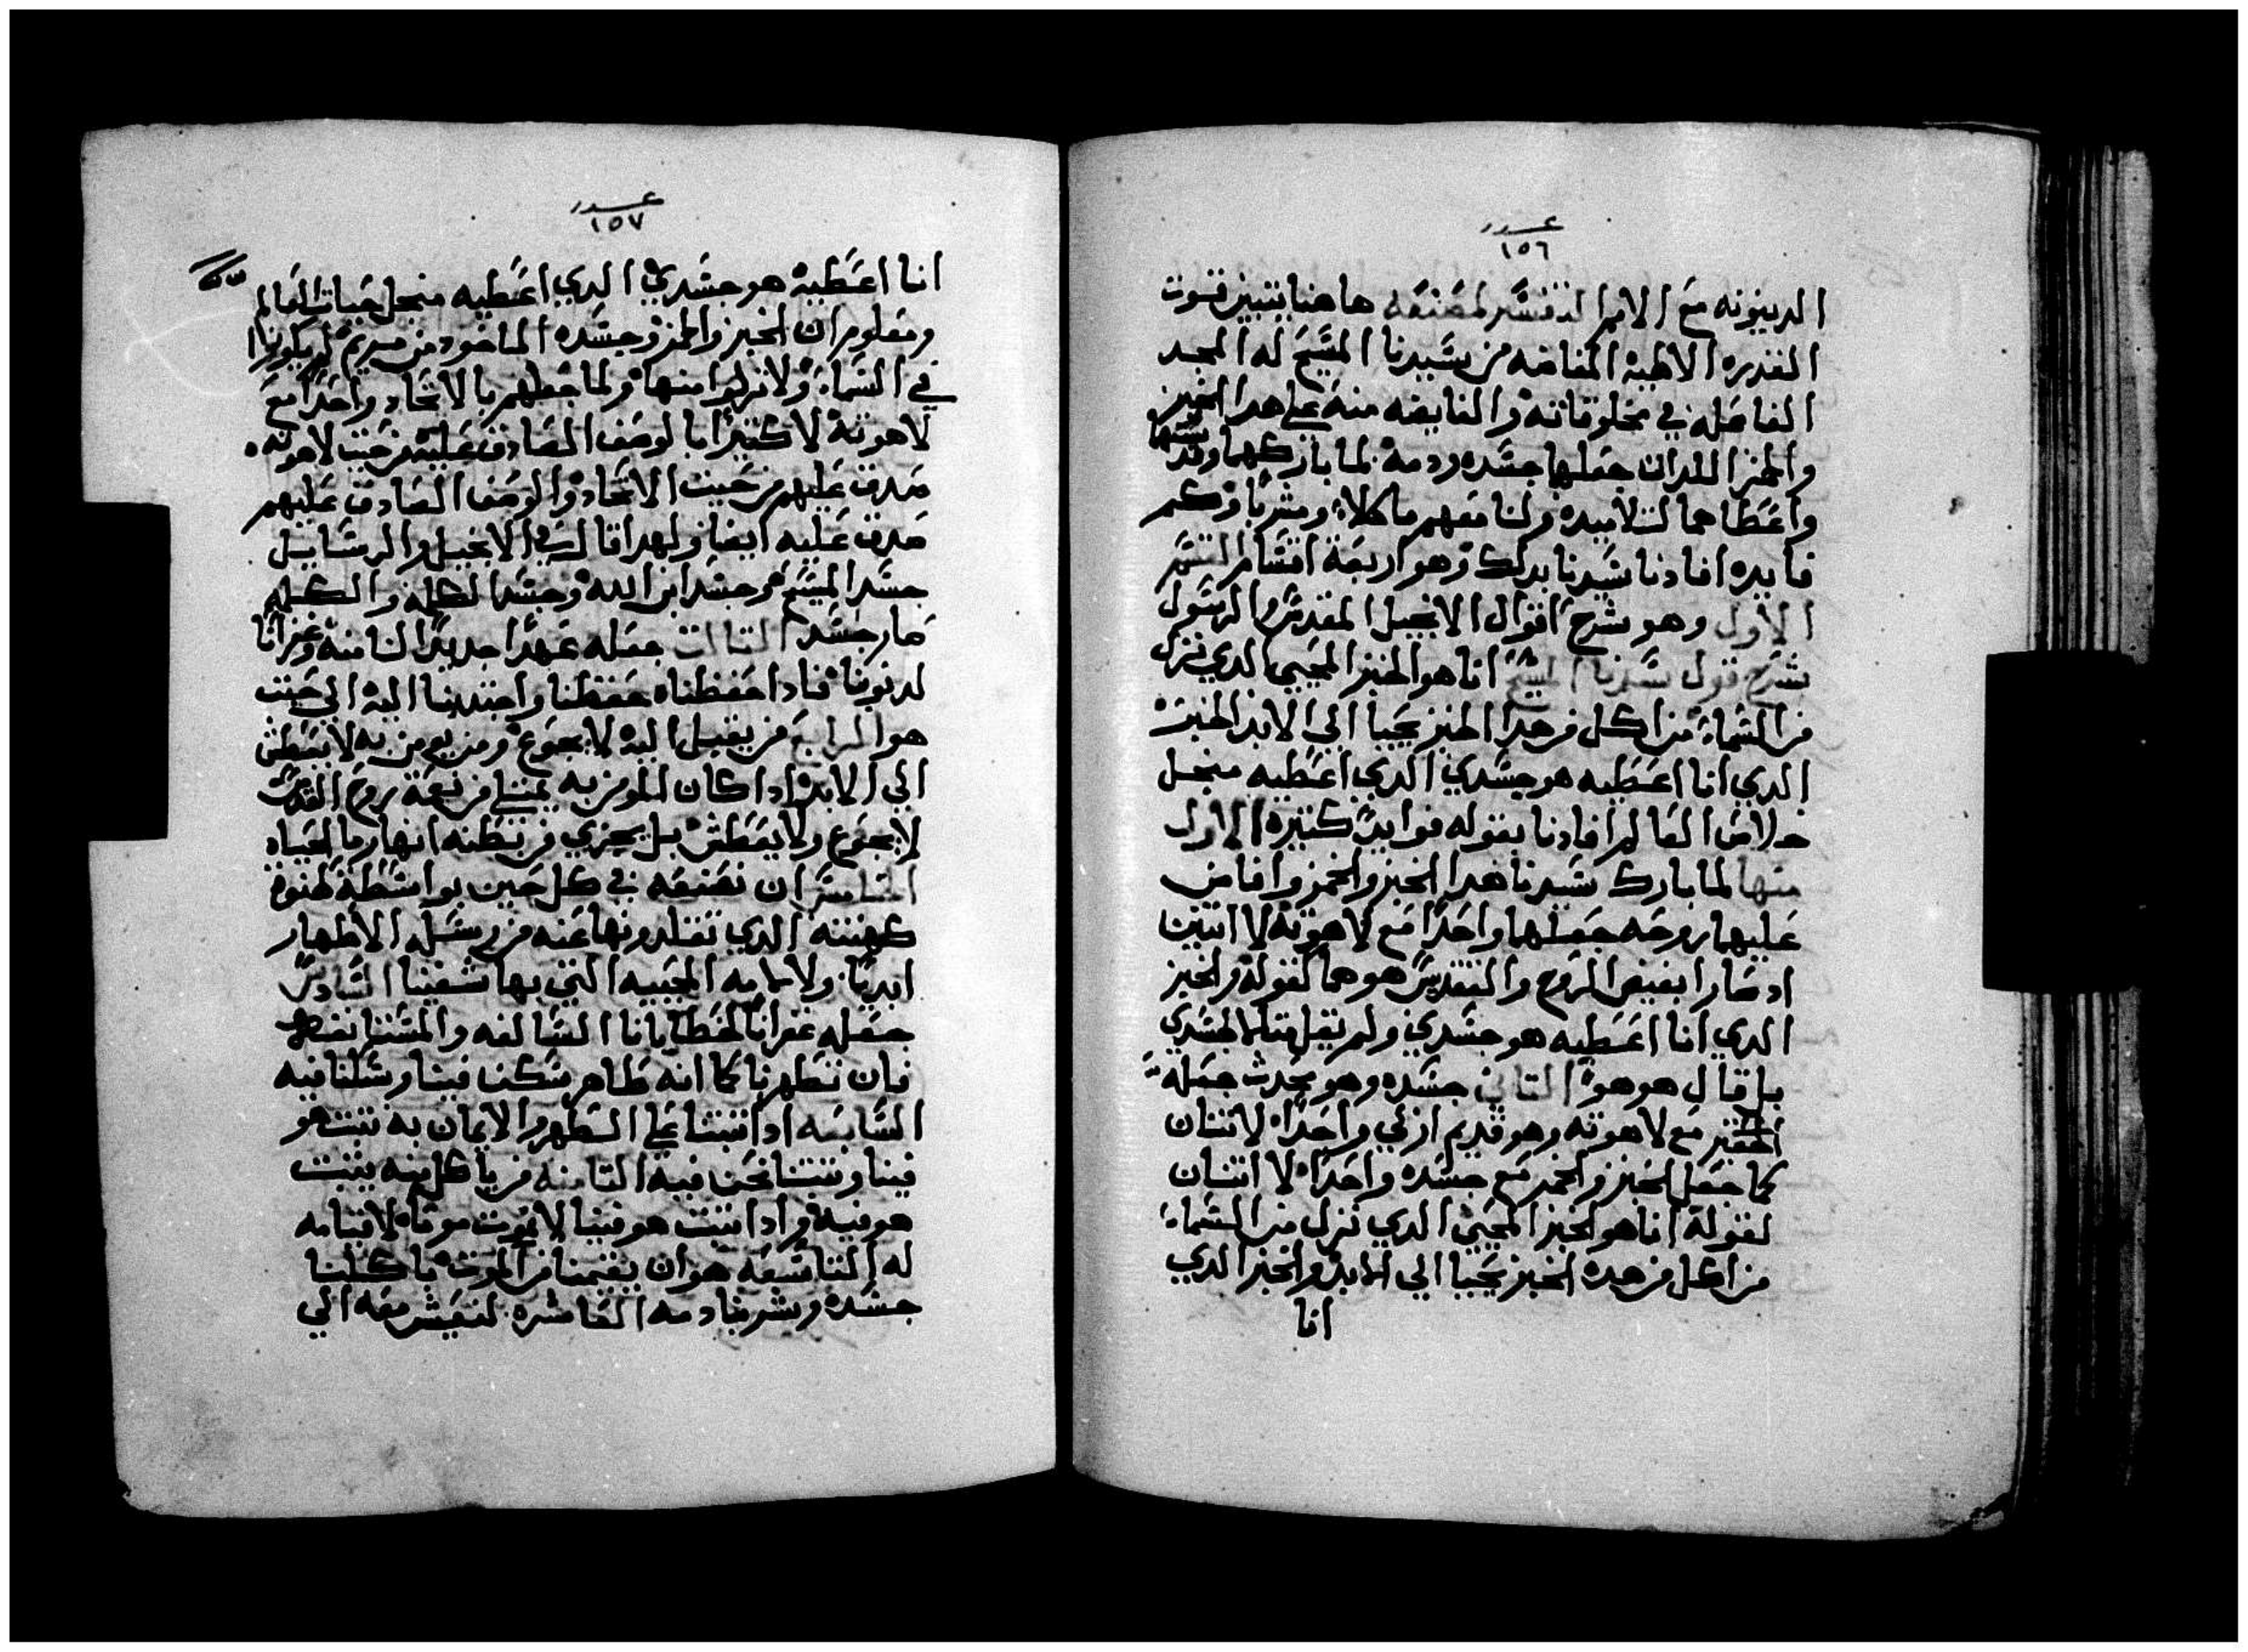 عدد
١٥٦
الدينونه مع الامم لنفسر لمصنعه هاهنا يتبين قوت
القدره الالهيه المفاضه من سيدنا المسيح له المجد
الفاعله في مخلوقاته والفايضه منه علي هدا الخبز
والخمر اللدان جعلها جسده ودمه لما باركهما وقدسهما
واعطاهما لتلاميده ولنا معهم ماكلاً ومشرباً وكم
فايده افادنا سيدنا بدلك وهو اربعة اقسام القسم
الاول وهو شرح اقوال الانجيل المقدس والرسول
شرح قول سيدنا المسيح انا هو الخبز المحيي الدي نزل
من السماء من اكل من هدا الخبز يحيا الي الابد الخبز
الدي انا اعطيه هو جسدي الدي اعطيه منجل
خلاص العالم افادنا بقوله فوايد كتيره الاول
منها لما بارك سيدنا هدا الخبز والخمر وافاض
عليهما روحه جعلهما واحداً مع لاهوته لا اتنين
اد صارا بفيض الروح والتقديس هو هما لقوله والخبز
الدي انا اعطيه هو جسدي ولم يقل متلا لجسدي
بل قال هو هو التاني جسده وهو محدت جعله
مع لاهوته وهو قديم ازلي واحداً لا اتنان
كما جعل الخبز والخمر مع جسده واحداً لا اتنان
لقوله انا هو الخبز المحيي الدي نزل من السماء
من اكل من هدا الخبز يحيا الي الابد والخبز الدي
انا
عدد
١٥٧
انا اعطيه هو جسدي الدي اعطيه منجل حيات العالم
ومعلوم ان الخبز والخمر وجسده الماخود من مريم لم يكونوا
في السماء ولا نزلوا منها ولما جعلهم بالاتحاد واحداً مع
لاهوته لا كتيراً بالوصف الصادق عليه من حيت لاهوته
صدق عليهم من حيت الاتحاد والوصف الصادق عليهم
صدق عليه ايضا ولهدا قال في الانجيل والرسايل
جسد المسيح وجسد ابن الله وجسد الكلمه والكلمه
صار جسد التالت جعله عهداً جديداً لنا منه وغفراناً
لدنوبنا فادا حفظناه حفظنا واجتدبنا اليه الي حيت
هو الرابع من يقبل اليه لا يجوع ومن يومن به لا يعطش
الي الابد ادا كان المومن به يمتلي من نعمة روح القدس
لا يجوع ولا يعطش بل يجري من بطنه انهار ما الحياه
الخامس ان نصنعه في كل حين بواسطة كهنوة
كهنته الدي تقلدونها عنه من رسله الاطهار
ابدياً ولالامه المحييه التي بها شفينا السادس
جعله غفراناً لخطايانا السالفه والمستانفه
فان تطهرنا كما انه طاهر سكن فينا وسكنا فيه
السابعه ادا تبتنا علي الطهر والايمان به تبت هو
فينا وتبتنا نحن فيه التامنه من ياكل منه يتبت
هو فيه وادا تبت هو فينا لا نموت موتاً لا قيامه
له التاسعه هو ان يقيمنا من الموت باكلنا
جسده وشربنا دمه العاشره لنعيش معه الي